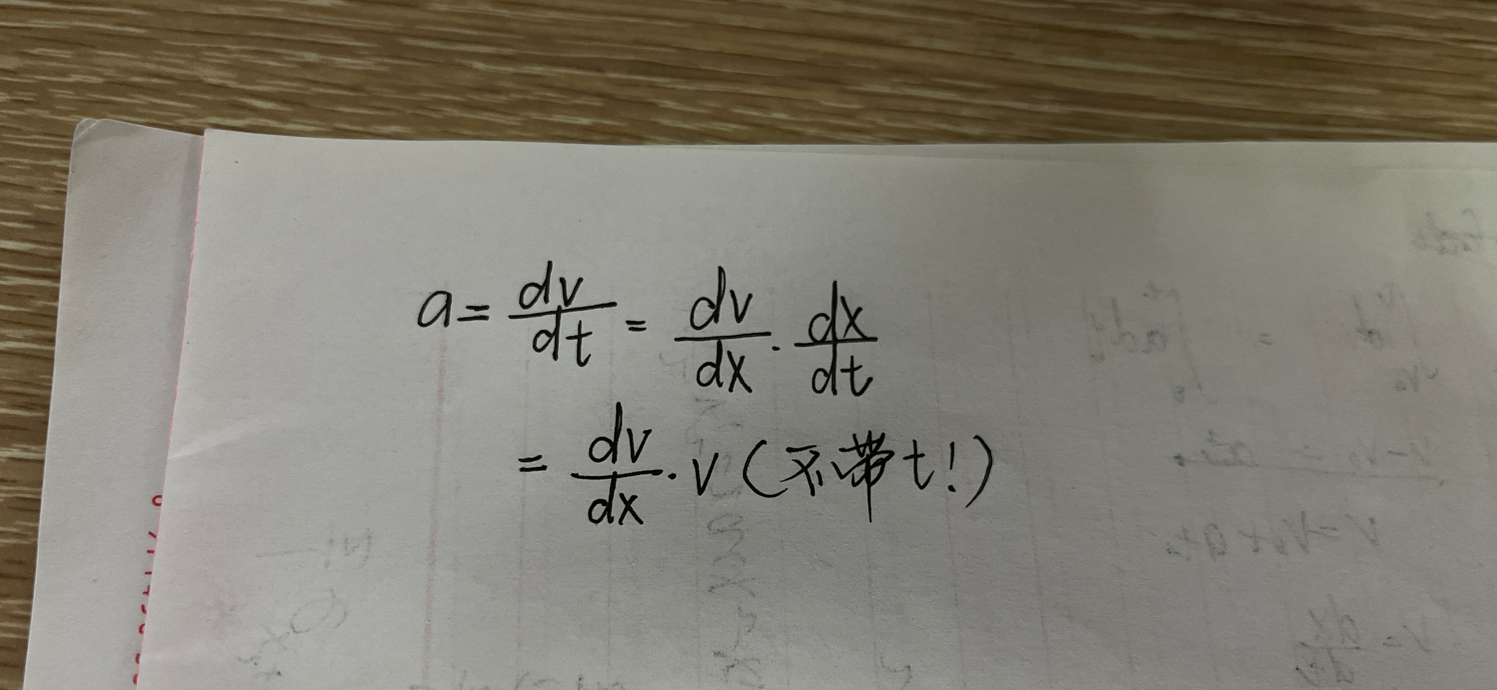 a = dv/dt = dv/dx · dx/dt
= dv/dx · v (不带t!)